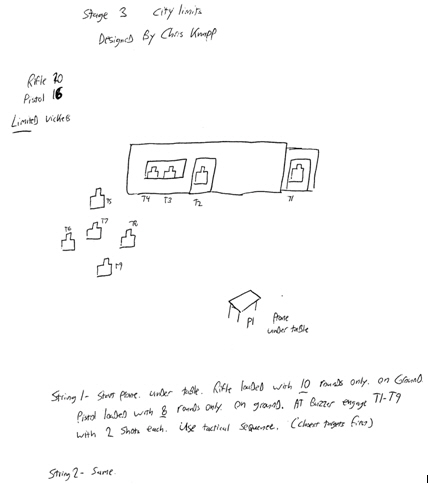 Stage 3 City limits
Designed By Chris Knapp
Rifle 20
Pistol 16
Limited Vickers
T5
T4 T3 T2 T1
T6 T7 T8
T9
P1 Prone
under table
String 1- Start Prone. under table. Rifle loaded with 10 rounds only. on Ground
Pistol loaded with 8 rounds only. on ground. AT Buzzer engage T1-T9
with 2 Shots each. Use tactical sequence. (closest targets first)
String 2- Same.